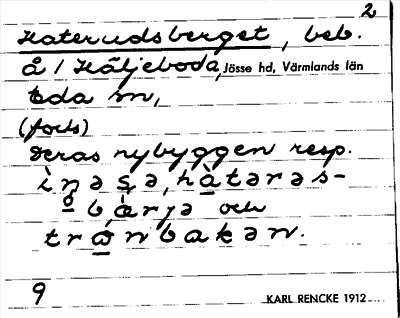 2
Haterudsberget, beb.
å / Häljeboda, Jösse hd, Värmlands län
Eda sn,
(forts)
deras nybyggen resp.
hàtərəs-
bàrjə och
trånbakən.
9
KARL RENCKE 1912